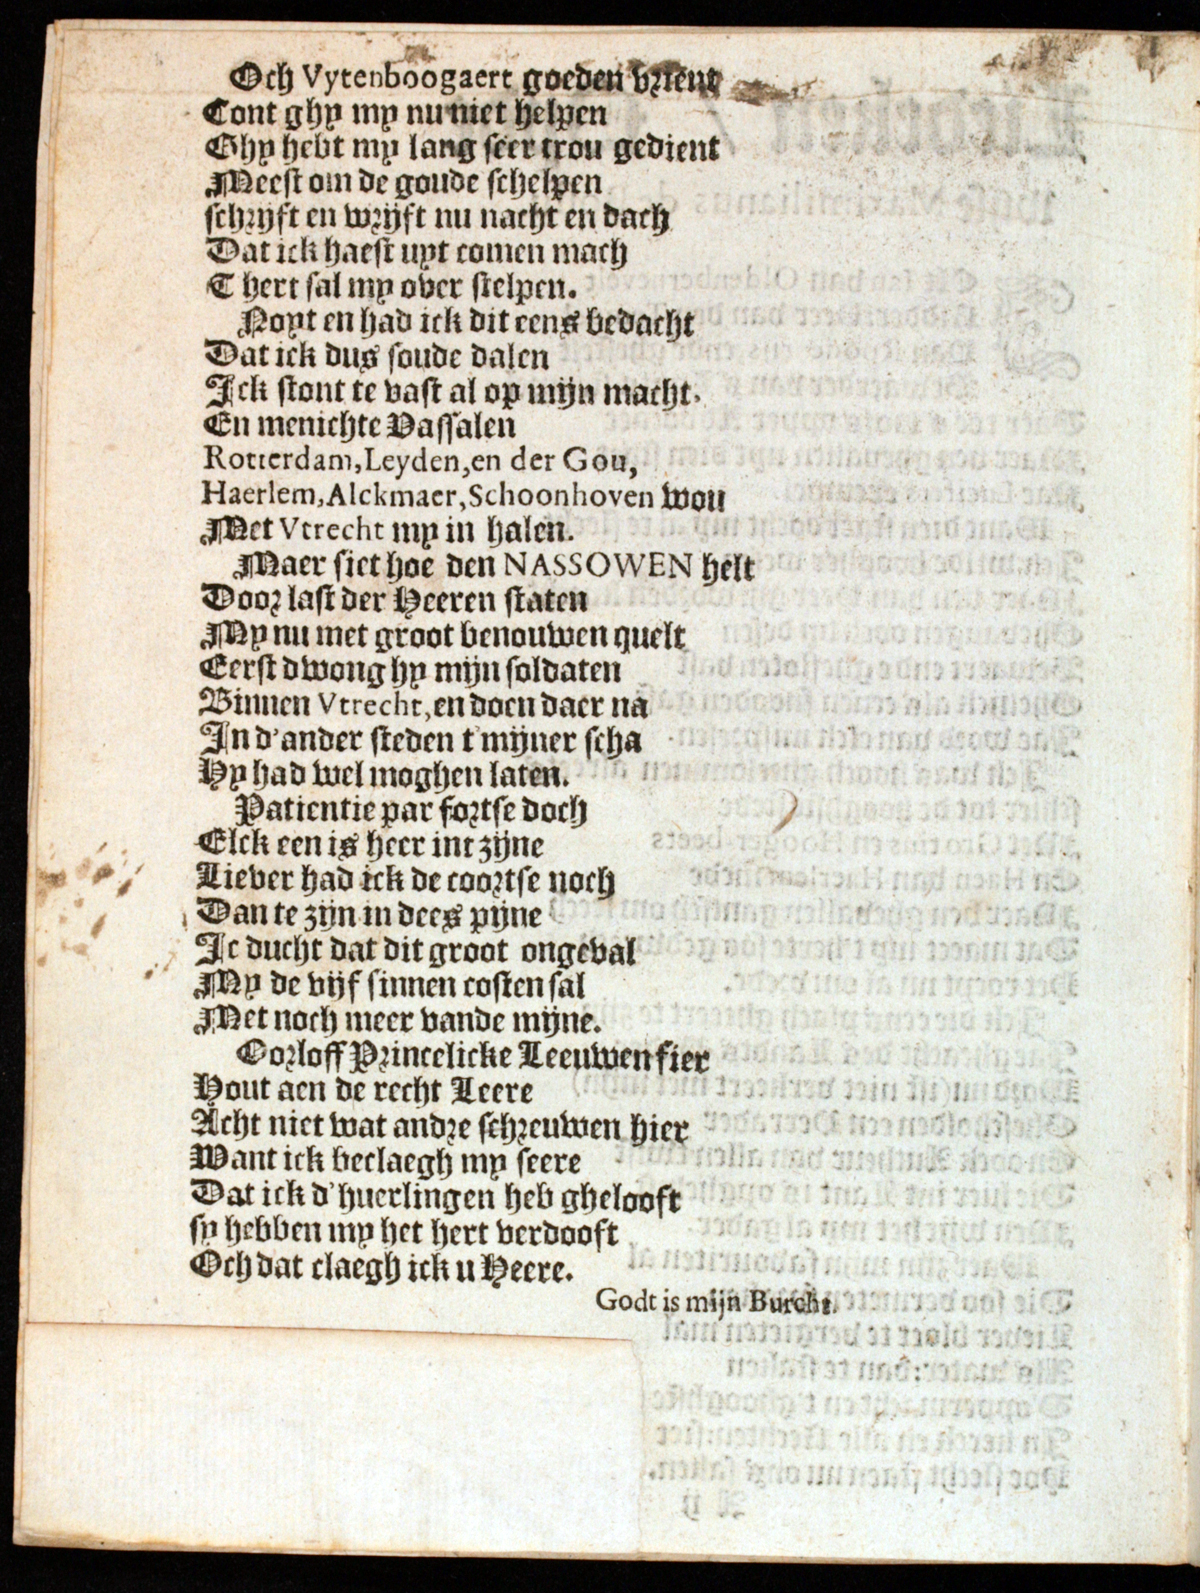 Och Vytenboogaert goeden vrient
Cont ghy my nu niet helpen
Ghy hebt my lang seer trou gedient
Meest om de goude schelpen
schrijft en wrijft nu nacht en dach
Dat ick haest uyt comen mach
T hert sal my over stelpen.
Noyt en had ick dit eens bedacht
Dat ick dus soude dalen
Ick stont te vast al op mijn macht,
En menichte Vassalen
Rotterdam, Leyden, en der Gou,
Haerlem, Alckmaer, Schoonhoven wou
Met Vtrecht my in halen.
Maer siet hoe den NASSOWEN helt
Door last der Heeren staten
My nu met groot benouwen quelt
Eerst dwong hy mijn soldaten
Binnen Vtrecht, en doen daer na
In d'ander steden t'mijner scha
Hy had wel moghen laten.
Patientie par fortse doch
Elck een is heer int zijne
Liever had ick de coortse noch
Dan te zijn in dees pijne
Ic ducht dat dit groot ongeval
My de vijf sinnen costen sal
Met noch meer vande mijne.
Oorloff Princelicke Leeuwen fier
Hout aen de recht Leere
Acht niet wat andre schreuwen hier
Want ick beclaegh my seere
Dat ick d'huerlingen heb ghelooft
sy hebben my het hert verdooft
Och dat claegh ick u Heere.
Godt is mijn Burcht.